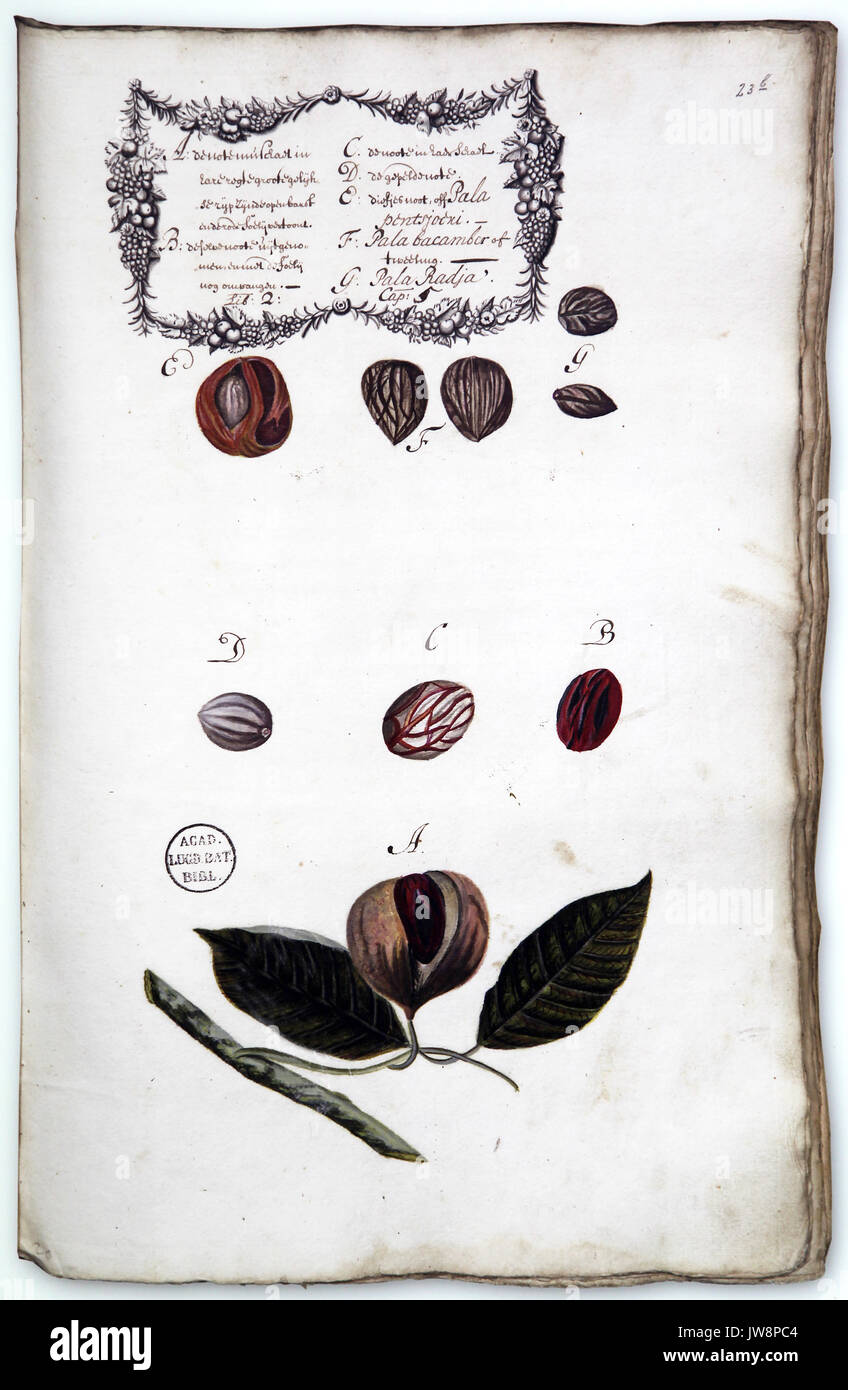 23
A: de note muschaet in
hare regte groote gelijk
se rijp zijnde open barst
en de rode foelij vertoont.
B: de selve noote uijtgeno-
men, en met de foelij
nog omvangen.
Lib: 2:
C. de noote in haer schael.
D. de gepelde note.
E: diefjes noot, off Pala
pentsjoeri.
F: Pala bacamber of
tweeling.
G. Pala Radja.
Cap: 5
E
F
G
D
C
B
ACAD.
LUGD. BAT.
BIBL.
A
alamy
a
alamy stock photo
JW8PC4
www.alamy.com